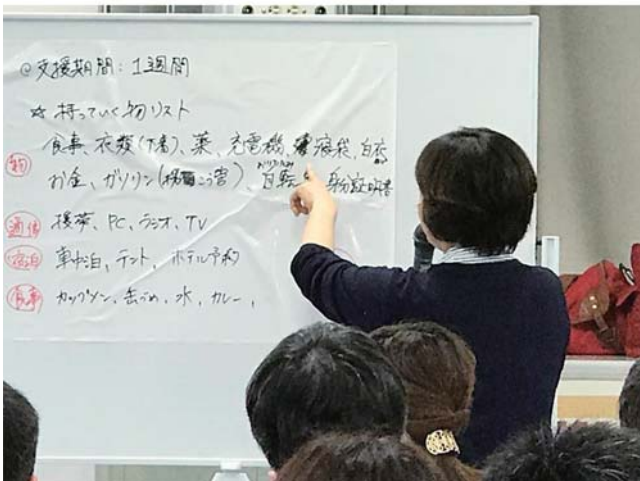 @支援期間：1週間
☆ 持っていく物リスト
食事、衣類(下着)、薬、充電機、寝袋、白衣
物 お金、ガソリン( )、自転車、身分証明書
通信 携帯、PC、ラジオ、TV
宿泊 車中泊、テント、ホテル予約
食事 カップメン、缶づめ、水、カレー、